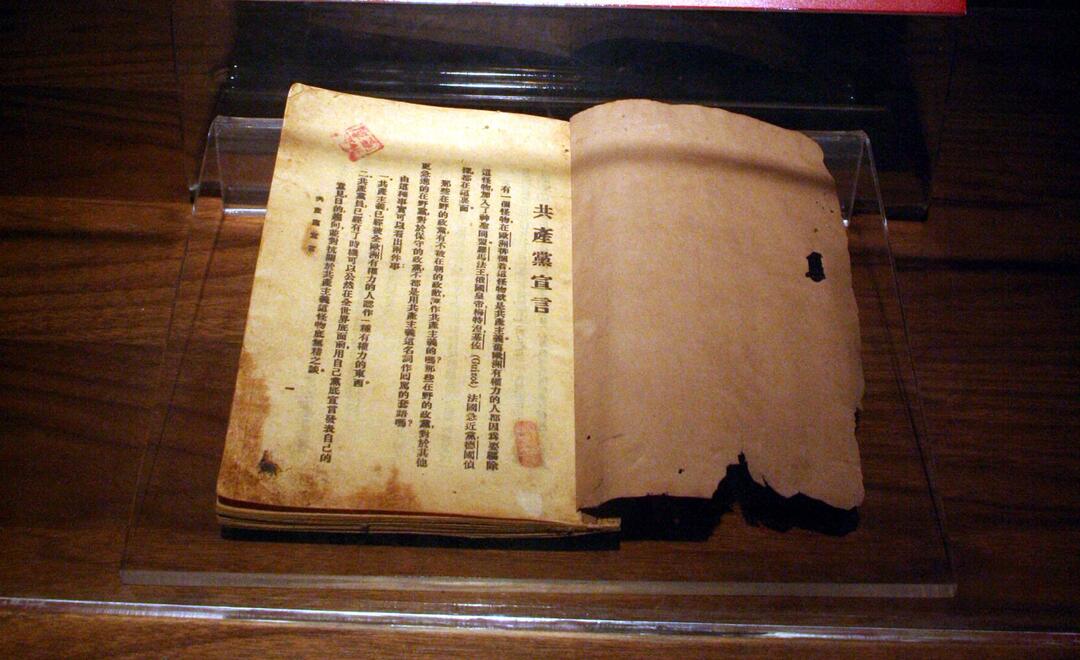 共產黨宣言
有一個怪物在歐洲徘徊着這怪物就是共產主義。舊歐洲有權力的人都因爲要驅除
這怪物加入了神聖同盟。羅馬法王俄國皇帝梅特涅基佐 (Guizot) 法國急近黨德國偵
探都在這裏面。
那些在野的政黨有不被在朝的政敵誣作共產主義的嗎？那些在野的政黨對於其他
更急進的在野黨對於保守的政黨不都是用共產主義這名詞作回罵的套語嗎？
由這種事實可以看出兩件事：
一、共產主義已經被全歐洲有權力的人認作一種有權力的東西。
二、共產黨員已經有了時機可以公然在全世界底面前用自己黨底宣言發表自己的
意見目的趨向並對抗關於共產主義這怪物底無稽之談。
共產黨宣言
一